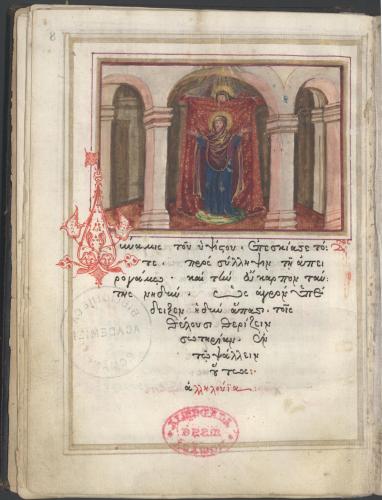 Δύναμις τοῦ ὑψίστου. ἐπεσκίασε τό
τε. πρὸς σύλληψιν τῇ ἀπει
ρογάμῳ. καὶ τὴν εὔκαρπον ταύ
της νηδὺν. ὡς ἀγρὸν ὑπέ
δειξεν ἡδὺν ἅπασι. τοῖς
θέλουσι θερίζειν
σωτηρίαν. ἐν
τῷ ψάλλειν
οὕτως:
ἀλληλούϊα:
ACADEMIEI